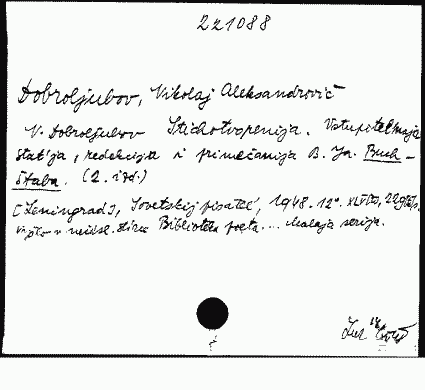 221088
Dobroljubov, Nikolaj Aleksandrovič
N. Dobroljubov Stichotvorenija. Vstupitel'naja
stat'ja, redakcija i primečanija B. Ja. Buch-
štaba. (2. izd.)
[Leningrad], Sovetskij pisatel', 1948. 12°. XLVIII,
Biblioteka poeta... Malaja serija.